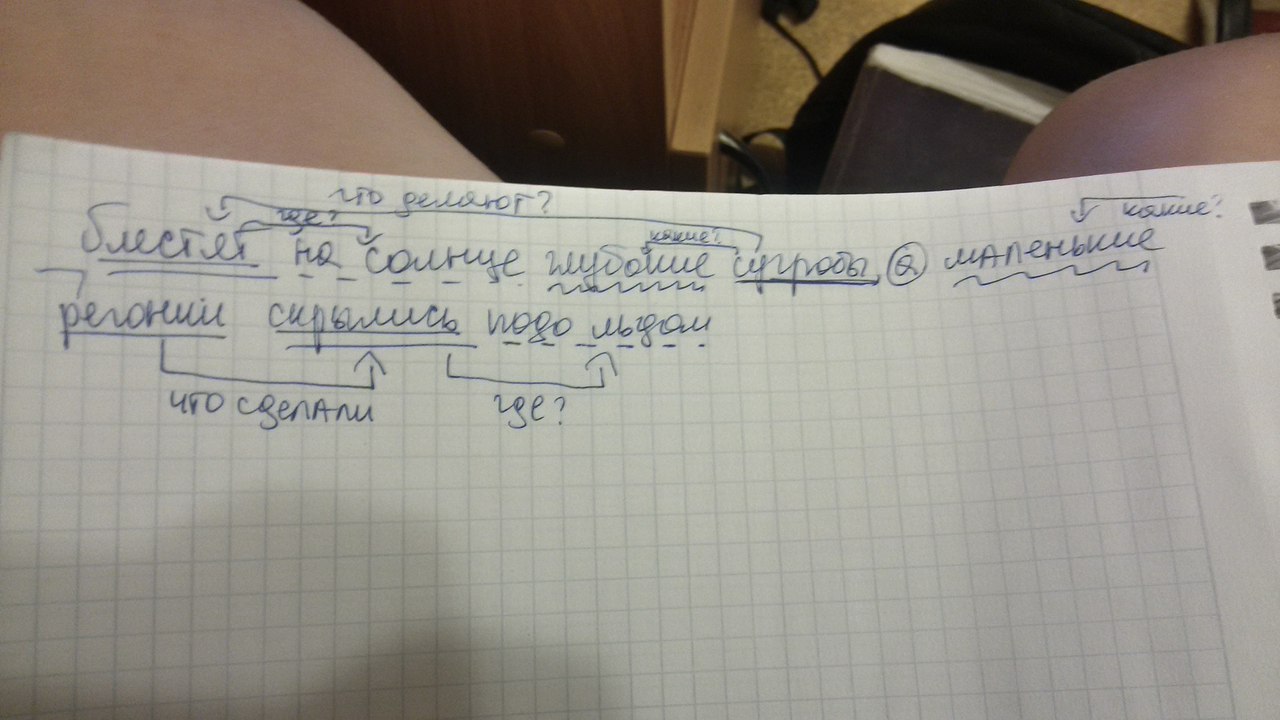 что делают?
где? какие? какие?
блестят на солнце глубокие сугробы, а маленькие
регонии скрылись подо льдом
что сделали где?